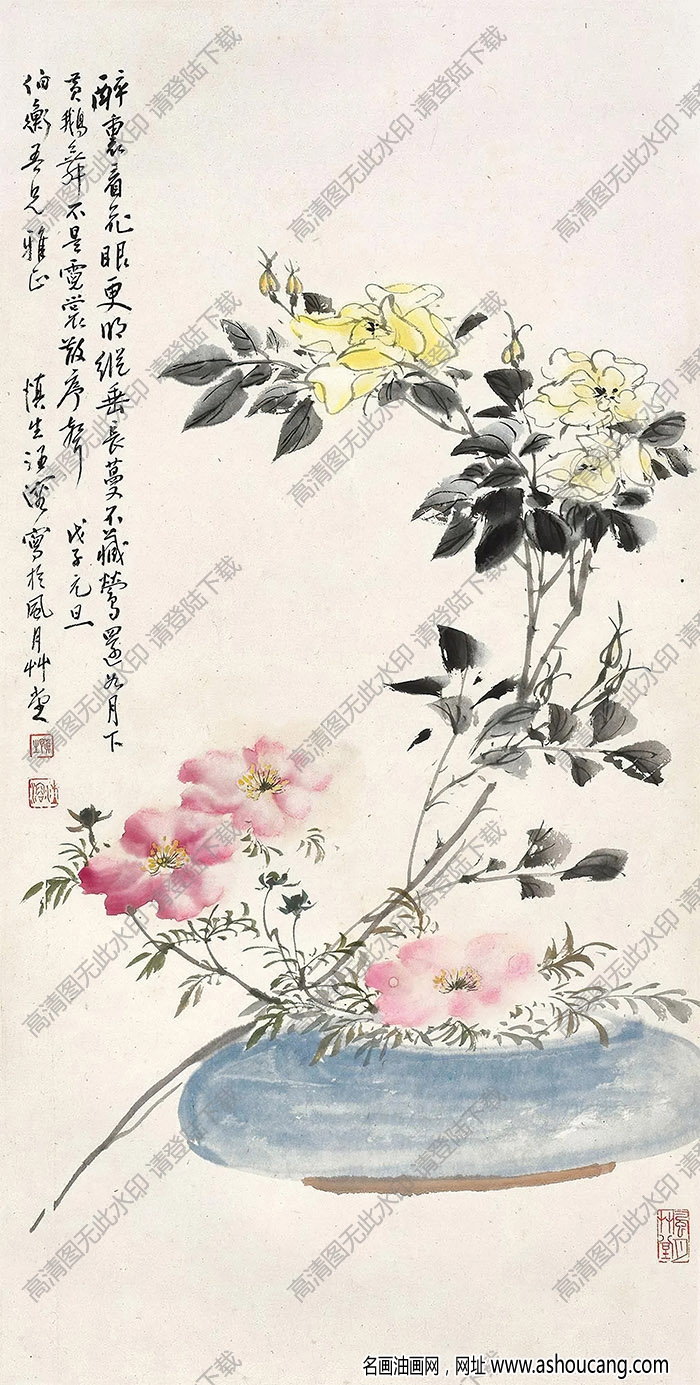 醉裏看花眼更明縱垂長蔓不藏鶯還如月下
黃鵝舞不是霓裳散序聲 戊子元旦
伯衡吾兄雅正 慎生汪溶寫於風月艸堂
慎生
汪溶
風月艸堂
高清图无此水印 请登陆下载
名画油画网，网址 www.ashoucang.com